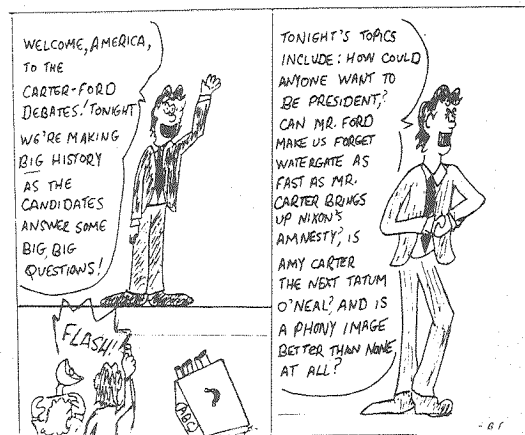 WELCOME, AMERICA,
TO THE
CARTER-FORD
DEBATES! TONIGHT
WE'RE MAKING
BIG HISTORY
AS THE
CANDIDATES
ANSWER SOME
BIG, BIG
QUESTIONS!
TONIGHT'S TOPICS
INCLUDE: HOW COULD
ANYONE WANT TO
BE PRESIDENT,?
CAN MR. FORD
MAKE US FORGET
WATERGATE AS
FAST AS MR.
CARTER BRINGS
UP NIXON'S
AMNESTY?, IS
AMY CARTER
THE NEXT TATUM
O'NEAL?, AND IS
A PHONY IMAGE
BETTER THAN NONE
AT ALL?
FLASH!
ABC